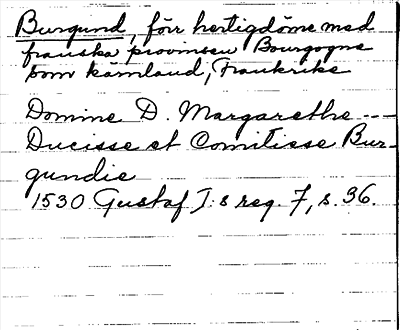 Burgund, förr hertigdöme med
franska provinsen Bourgogne
som kärnland, Frankrike
Domine D. Margarethe ---
Ducisse et Comitisse Bur-
gundie
1530 Gustaf I:s reg. 7, s. 36.